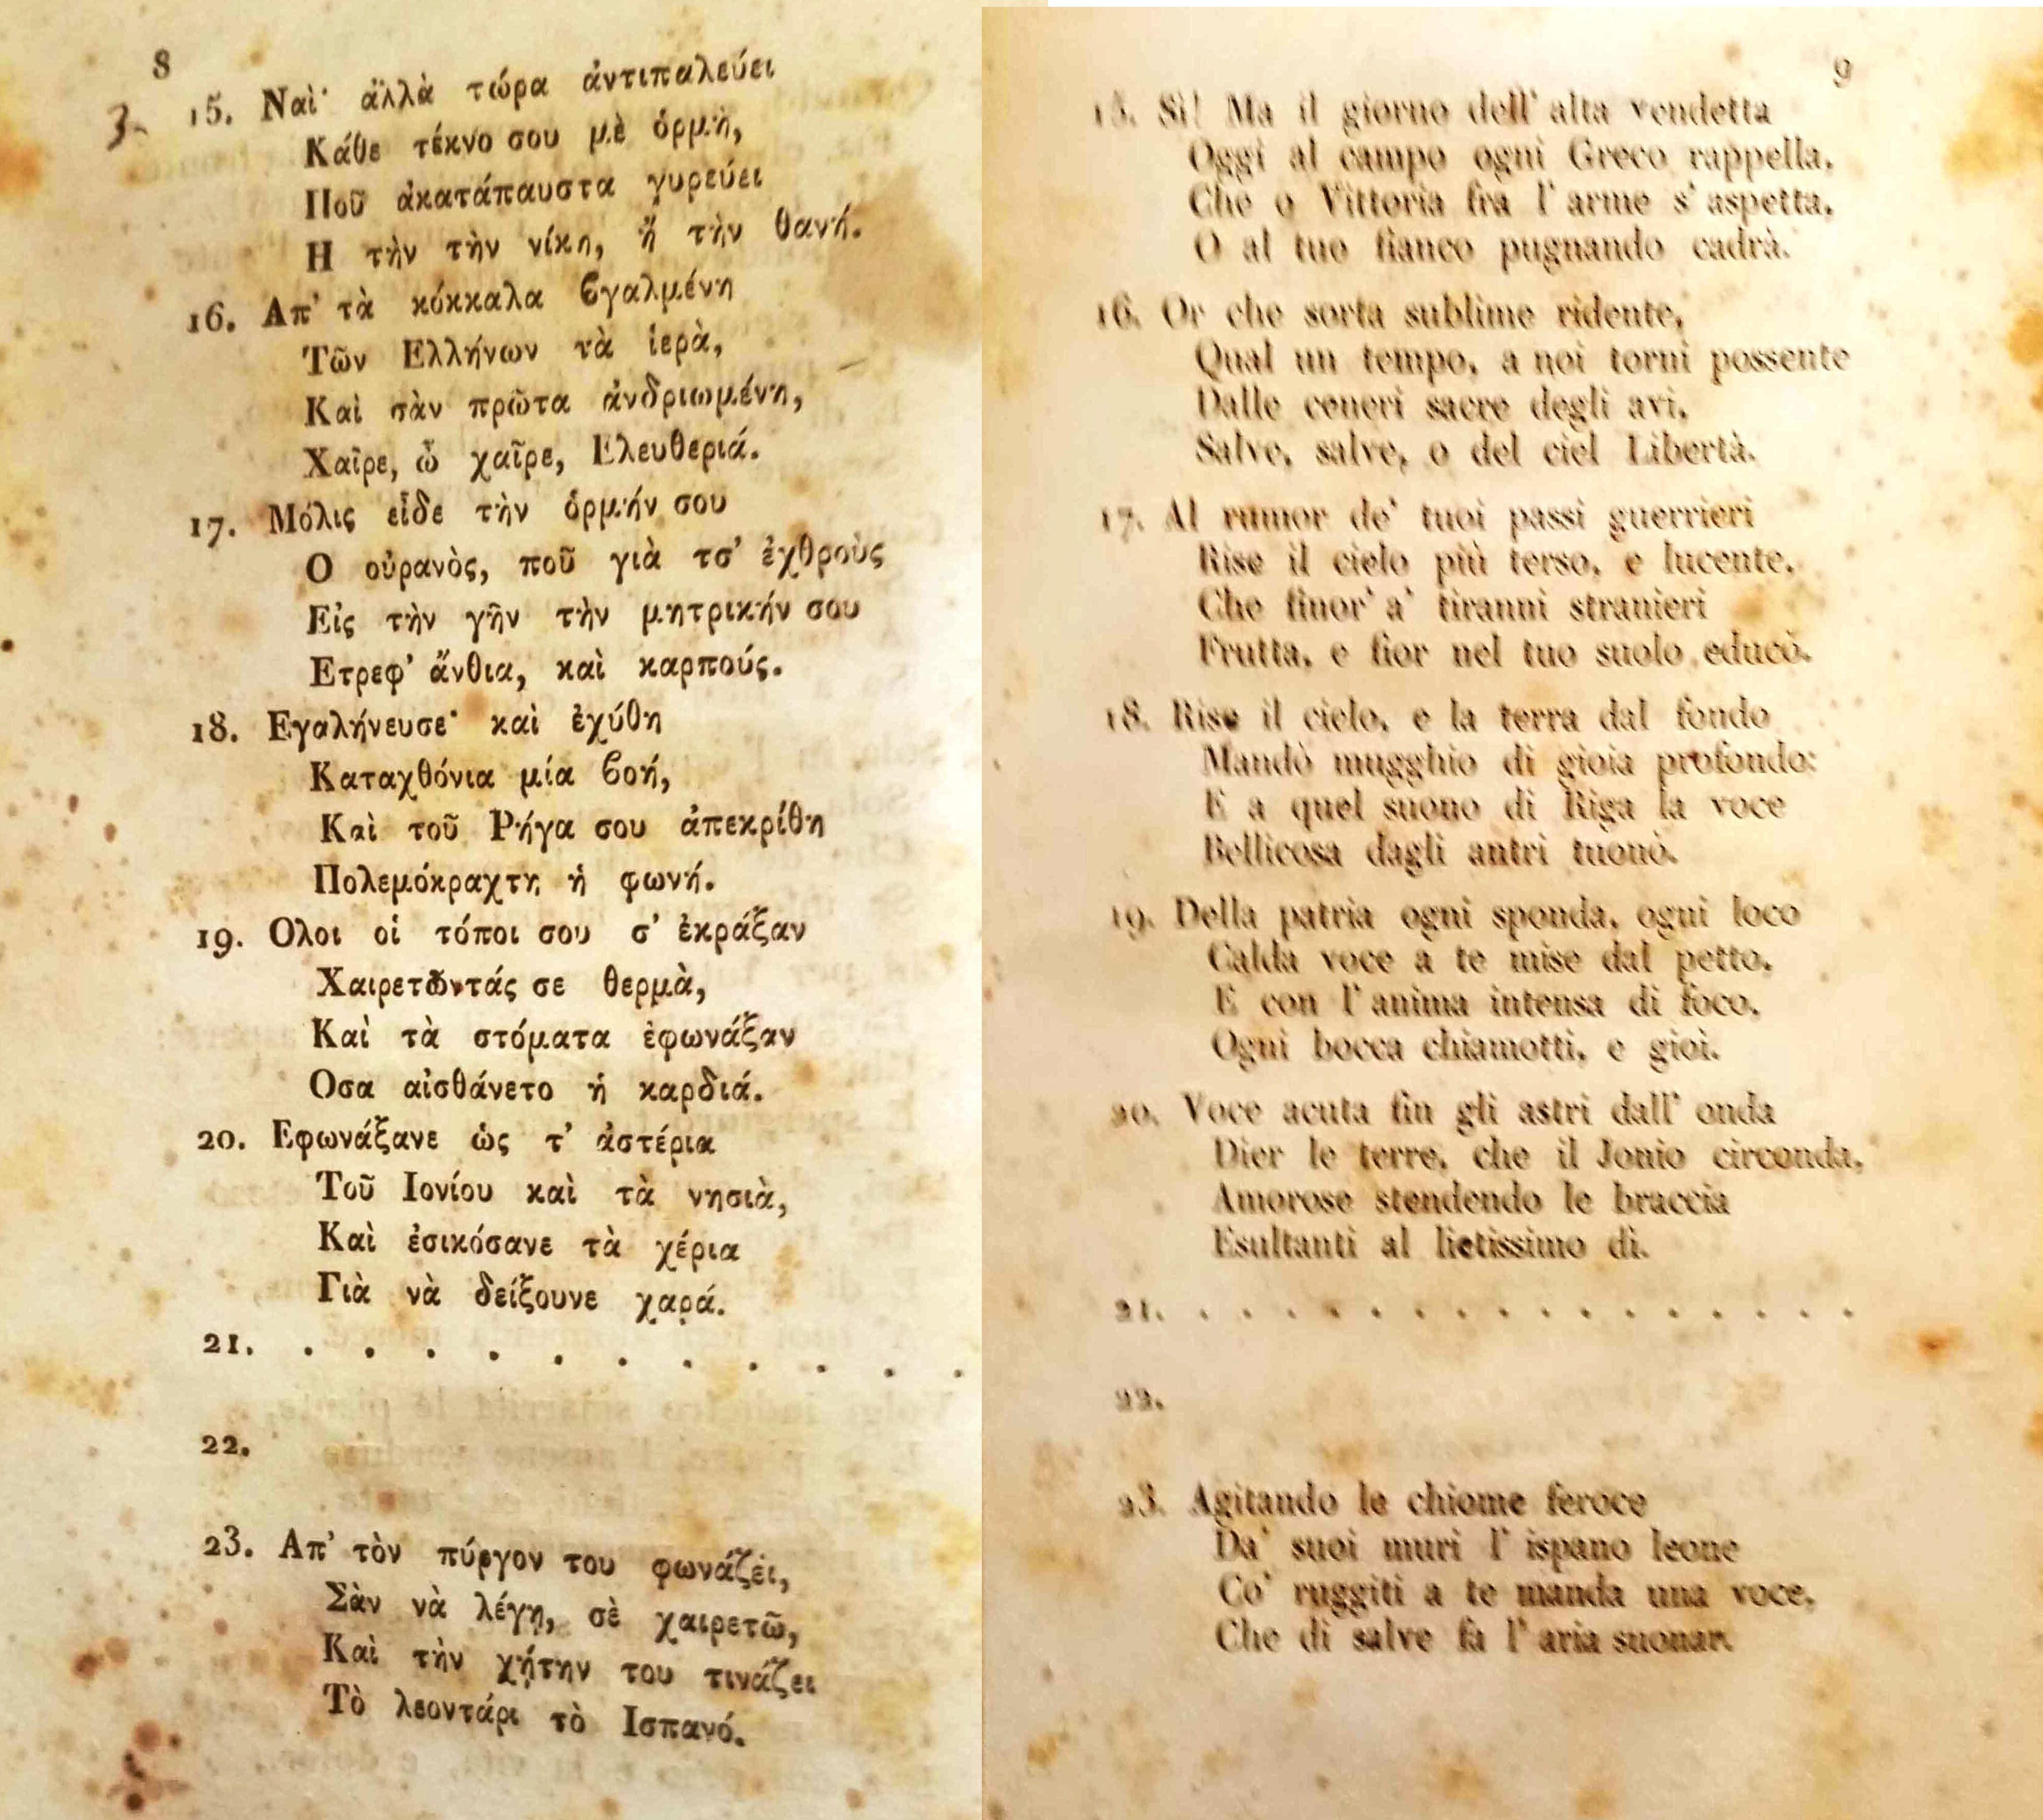 8
3.
15. Ναὶ· ἀλλὰ τώρα ἀντιπαλεύει
Κάθε τέκνο σου μὲ ὁρμὴ,
Ποῦ ἀκατάπαυστα γυρεύει
Η τὴν τὴν νίκη, ἢ τὴν θανή.
16. Απ' τὰ κόκκαλα ϐγαλμένη
Τῶν Ελλήνων τὰ ἱερὰ,
Καὶ σὰν πρῶτα ἀνδριωμένη,
Χαῖρε, ὦ χαῖρε, Ελευθεριά.
17. Μόλις εἶδε τὴν ὁρμήν σου
Ο οὐρανὸς, ποῦ γιὰ τσ' ἐχθροὺς
Εἰς τὴν γῆν τὴν μητρικήν σου
Ετρεφ' ἄνθια, καὶ καρπούς.
18. Εγαλήνευσε· καὶ ἐχύθη
Καταχθόνια μία ϐοή,
Καὶ τοῦ Ρήγα σου ἀπεκρίθη
Πολεμόκραχτη ἡ φωνή.
19. Ολοι οἱ τόποι σου σ' ἐκράξαν
Χαιρετῶντάς σε θερμὰ,
Καὶ τὰ στόματα ἐφωνάξαν
Οσα αἰσθάνετο ἡ καρδιά.
20. Εφωνάξανε ὡς τ' ἀστέρια
Τοῦ Ιονίου καὶ τὰ νησιὰ,
Καὶ ἐσικόσανε τὰ χέρια
Γιὰ νὰ δείξουνε χαρά.
21. . . . . . . . . . . .
22.
23. Απ' τὸν πύργον του φωνάζει,
Σὰν νὰ λέγῃ, σὲ χαιρετῶ,
Καὶ τὴν χήτην του τινάζει
Τὸ λεοντάρι τὸ Ισπανό.
9
15. Sì! Ma il giorno dell' alta vendetta
Oggi al campo ogni Greco rappella,
Che o Vittoria fra l' arme s' aspetta,
O al tuo fianco pugnando cadrà.
16. Or che sorta sublime ridente,
Qual un tempo, a noi torni possente
Dalle ceneri sacre degli avi,
Salve, salve, o del ciel Libertà.
17. Al rumor de' tuoi passi guerrieri
Rise il cielo più terso, e lucente,
Che finor' a' tiranni stranieri
Frutta, e fior nel tuo suolo educò.
18. Rise il cielo, e la terra dal fondo
Mandò mugghio di gioia profondo:
E a quel suono di Riga la voce
Bellicosa dagli antri tuonò.
19. Della patria ogni sponda, ogni loco
Calda voce a te mise dal petto,
E con l' anima intensa di foco,
Ogni bocca chiamotti, e gioì.
20. Voce acuta fin gli astri dall' onda
Dier le terre, che il Jonio circonda,
Amorose stendendo le braccia
Esultanti al lietissimo dì.
21. . . . . . . . . . . . . . . . .
22.
23. Agitando le chiome feroce
Da' suoi muri l' ispano leone
Co' ruggiti a te manda una voce,
Che di salve fa l' aria suonar.